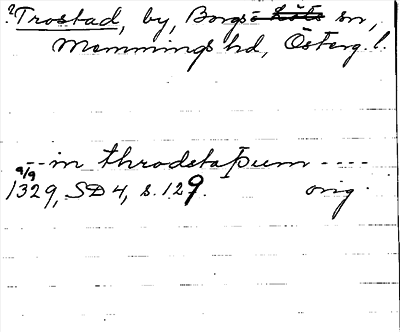 ? Trostad, by, Borgs sn,
Memmings hd, Österg. l.
-- in throdstaþum ----
9/9
1329, SD 4, s. 129. orig.